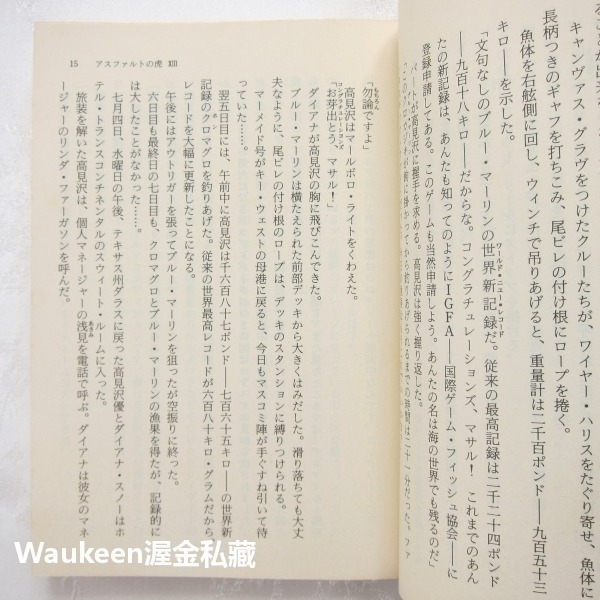 キャンヴァス・グラヴをつけたクルーたちが、ワイヤー・ハリスをたぐり寄せ、魚体に
長柄つきのギャフを打ちこみ、尾ビレの付け根にロープを捲く。
魚体を右舷側に回し、ウィンチで吊りあげると、重量計は二千百ポンド――九百五十三
キロ――を示した。
「文句なしのブルー・マーリンの世界新記録だ。従来の最高記録は二千二十四ポンド
ワールド・ニュー・レコード
――九百十八キロ――だからな。コングラチュレーションズ、マサル! これまでのあん
たの新記録は、あんたも知ってのようにIGFA――国際ゲーム・フィッシュ協会――に
登録申請してある。このゲームも当然申請しよう。あんたの名は海の世界でも残るのだ」
が高見沢に握手を求める。高見沢は強く握り返した。
までの時間は二十一分だった。ファ
15 アスファルトの虎 XIII
「勿論ですよ」
もちろん
高見沢はマールボロ・ライトをくわえた。
「お芽出とう、マサル!」
コングラチュレーションズ
ダイアナが高見沢の胸に飛びこんできた。
ブルー・マーリンは横たえられた前部デッキから大きくはみだした。滑り落ちても大丈
夫なように、尾ビレの付け根のロープは、デッキのスタンションに縛りつけられる。
マーメイド号がキー・ウェストの母港に戻ると、今日もマスコミ陣が手ぐすね引いて待
っていた……。
翌五日目には、午前中に高見沢は千六百八十七ポンド――七百六十五キロ――の世界新
記録のクロマグロを釣りあげた。従来の世界最高レコードが六百八十キロ・グラムだから
ホン
レコードを大幅に更新したことになる。
午後にはアウトリガーを張ってブルー・マーリンを狙ったが空振りに終った。
六日目も最終日の七日目も、クロマグロとブルー・マーリンの漁果を得たが、記録的に
は大したことがなかった……。
七月四日、水曜日の午後、テキサス州ダラスに戻った高見沢優とダイアナ・スノーはホ
テル・トランスコンチネンタルのスウィート・ルームに入った。
旅装を解いた高見沢は、個人マネージャーの浅見を電話で呼ぶ。ダイアナは彼女のマネ
あさみ
ージャーのリンダ・ファーガソンを呼んだ。
Waukeen渥金私藏